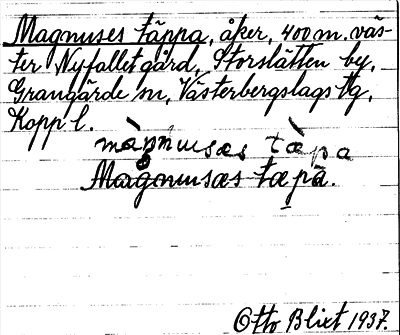 Magnuses täppa, åker, 400 m. väs-
ter Nyfallet gård, Storslätten by,
Grangärde sn, Västerbergslags tg,
Kopp l.
tæpa
Magnusæs tæpa.
Otto Blixt 1937.